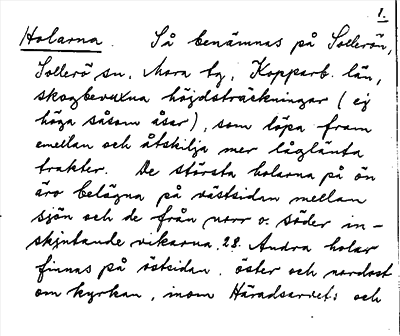 1.
Holarna. Så benämnas på Sollerön,
Sollerö sn, Mora tg, Kopparb. län,
skogbevuxna höjdsträckningar (ej
höga såsom åsar), som löpa fram
emellan och åtskilja mer låglänta
trakter. De största holarna på ön
äro belägna på västsidan mellan
sjön och de från norr o. söder in-
skjutande vikarna. 28. Andra holar
finnas på östsidan, öster och nordost
om kyrkan, inom Häradsarvet: och